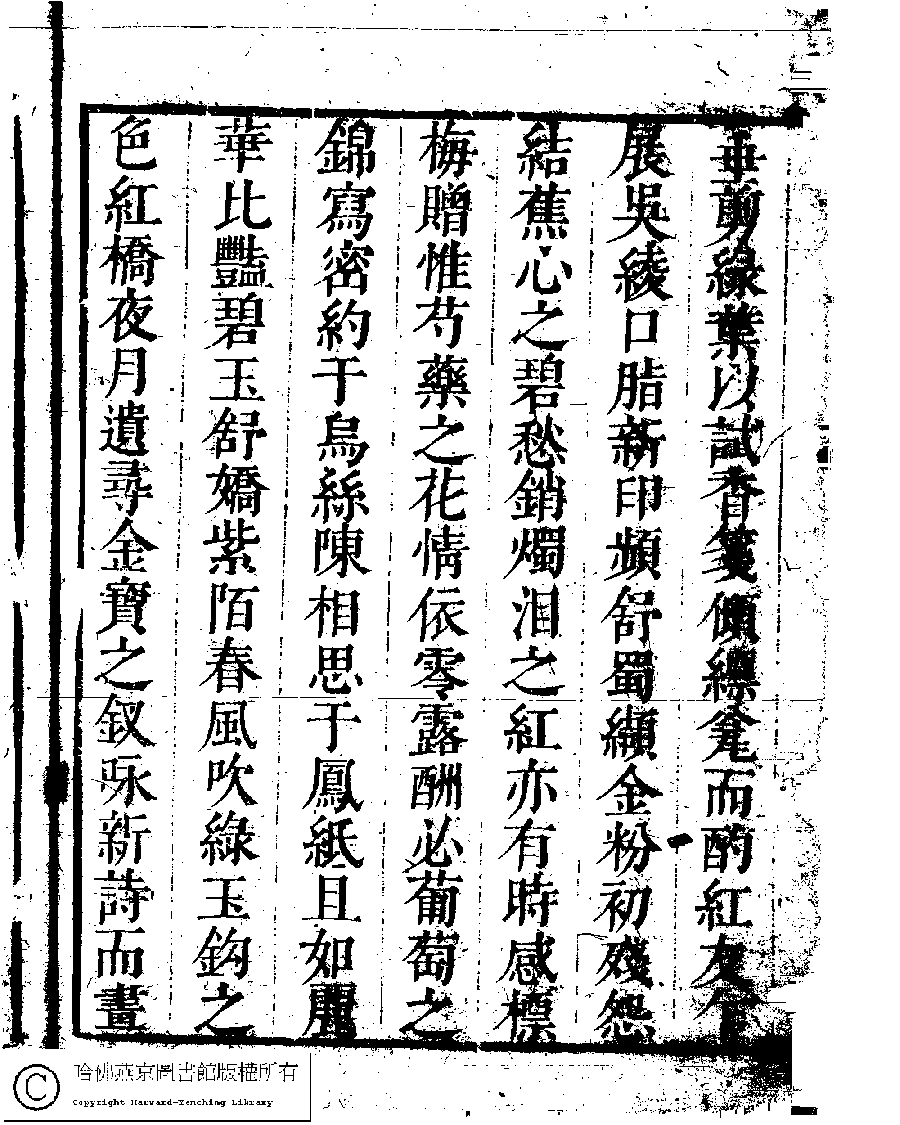 剪緣葉以試香箋傾縹瓮而酌紅友
展吳綾口脂新印頻舒蜀纈金粉初殘怨
結蕉心之碧愁銷燭泪之紅亦有時感標
梅贈惟芍藥之花情依零露酬必葡萄之
錦寫密約于烏絲陳相思于鳳紙且如麗
華比豔碧玉舒嬌紫陌春風吹綠玉鈎之
色紅橋夜月遺尋金寶之釵咏新詩而畫
哈佛燕京圖書館版權所有
Copyright Harvard-Yenching Library